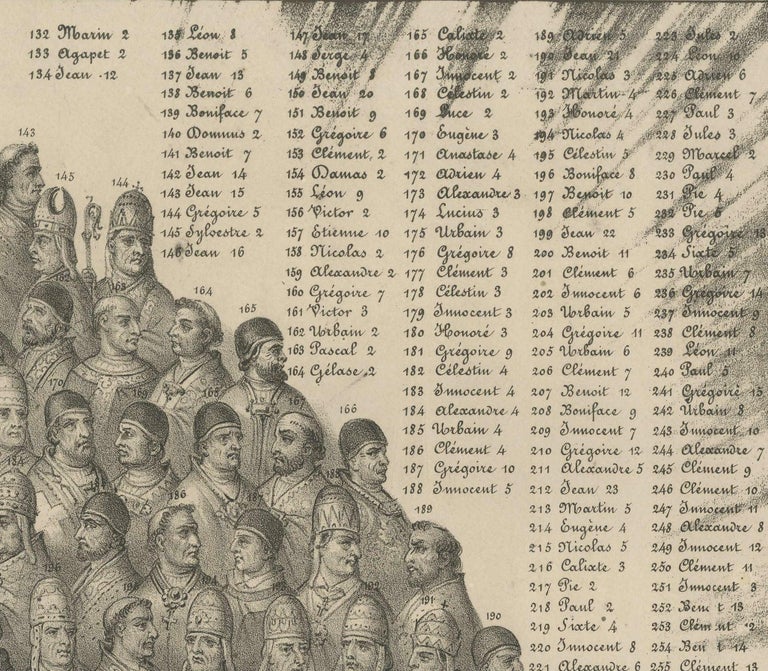 132 Marin 2
133 Agapet 2
134 Jean .12
135 Léon 8
136 Benoit 5
137 Jean 13
138 Benoit 6
139 Boniface 7
140 Domnus 2
141 Benoit 7
142 Jean 14
143 Jean 15
144 Grégoire 5
145 Sylvestre 2
146 Jean 16
147 Jean 17
148 Serge 4
149 Benoit 8
150 Jean 20
151 Benoit 9
152 Grégoire 6
153 Clément, 2
154 Damas 2
155 Léon 9
156 Victor 2
157 Etienne 10
158 Nicolas 2
159 Alexandre 2
160 Grégoire 7
161 Victor 3
162 Urbain 2
163 Pascal 2
164 Gélase 2
165 Calixte 2
166 Honoré 2
167 Innocent 2
168 Célestin 2
169 Luce 2
170 Eugène 3
171 Anastase 4
172 Adrien 4
173 Alexandre 3
174 Lucius 3
175 Urbain 3
176 Grégoire 8
177 Clément 3
178 Célestin 3
179 Innocent 3
180 Honoré 3
181 Grégoire 9
182 Célestin 4
183 Innocent 4
184 Alexandre 4
185 Urbain 4
186 Clément 4
187 Grégoire 10
188 Innocent 5
189 Adrien 5
190 Jean 21
191 Nicolas 3
192 Martin 4
193 Honoré 4
194 Nicolas 4
195 Célestin 5
196 Boniface 8
197 Benoit 10
198 Clément 5
199 Jean 22
200 Benoit 11
201 Clément 6
202 Innocent 6
203 Urbain 5
204 Grégoire 11
205 Urbain 6
206 Clément 7
207 Benoit 12
208 Boniface 9
209 Innocent 7
210 Grégoire 12
211 Alexandre 5
212 Jean 23
213 Martin 5
214 Eugène 4
215 Nicolas 5
216 Calixte 3
217 Pie 2
218 Paul 2
219 Sixte 4
220 Innocent 8
221 Alexandre 6
223 Jules 2
224 Léon 10
225 Adrien 6
226 Clément 7
227 Paul 3
228 Jules 3
229 Marcel 2
230 Paul 4
231 Pie 4
232 Pie 5
233 Grégoire 13
234 Sixte 5
235 Urbain 7
236 Grégoire 14
237 Innocent 9
238 Clément 8
239 Léon 11
240 Paul 5
241 Grégoire 15
242 Urbain 8
243 Innocent 10
244 Alexandre 7
245 Clément 9
246 Clément 10
247 Innocent 11
248 Alexandre 8
249 Innocent 12
250 Clément 11
251 Innocent 3
252 Ben t 13
253 Clém nt 2
254 Ben t 14
255 Clément 13
143
145
144
162
163
164
165
170
169
165
167
166
184
186
187
189
196
194
192
191
190